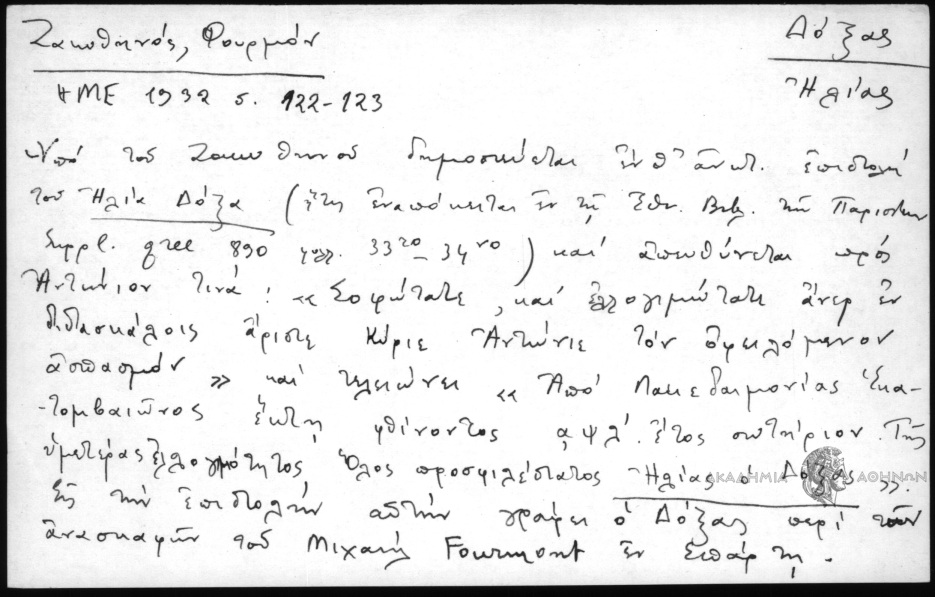 Ζακυθηνός, Φουρμόν
Δόξας
ΗΜΕ 1932 σ. 122-123
Ἠλίας
Ὑπό τοῦ Ζακυθηνοῦ δημοσιεύεται ἐνθ' ἀνωτ. ἐπιστολή
τοῦ Ἠλία Δόξα (ἥτις ἐναπόκειται ἐν τῇ Ἐθν. Βιβ. τῶν Παρισίων
Suppl. grec 890 φυλ. 33ro - 34vo) καί ἀπευθύνεται πρός
Ἀντώνιον τινά: «Σοφώτατε, καί ἐλλογιμώτατε ἄνερ ἐν
διδασκάλοις ἄριστε Κύριε Ἀντώνιε τόν ὀφειλόμενον
ἀσπασμόν» καί τελειώνει «Ἀπό Λακεδαιμονίας Ἑκα-
-τομβαιῶνος ἕκτῃ φθίνοντος ͵αψλ΄. ἔτος σωτήριον. Τῆς
ὑμετέρας ἐλλογιμότητος ὅλος προσφιλέστατος Ἠλίας ὁ Δόξας».
Εἰς τήν ἐπιστολήν αὐτήν γράφει ὁ Δόξας περί τῶν
ἀνασκαφῶν τοῦ Μιχαήλ Fourmont ἐν Σπάρτῃ.
ΑΚΑΔΗΜΙΑ ΑΘΗΝΩΝ